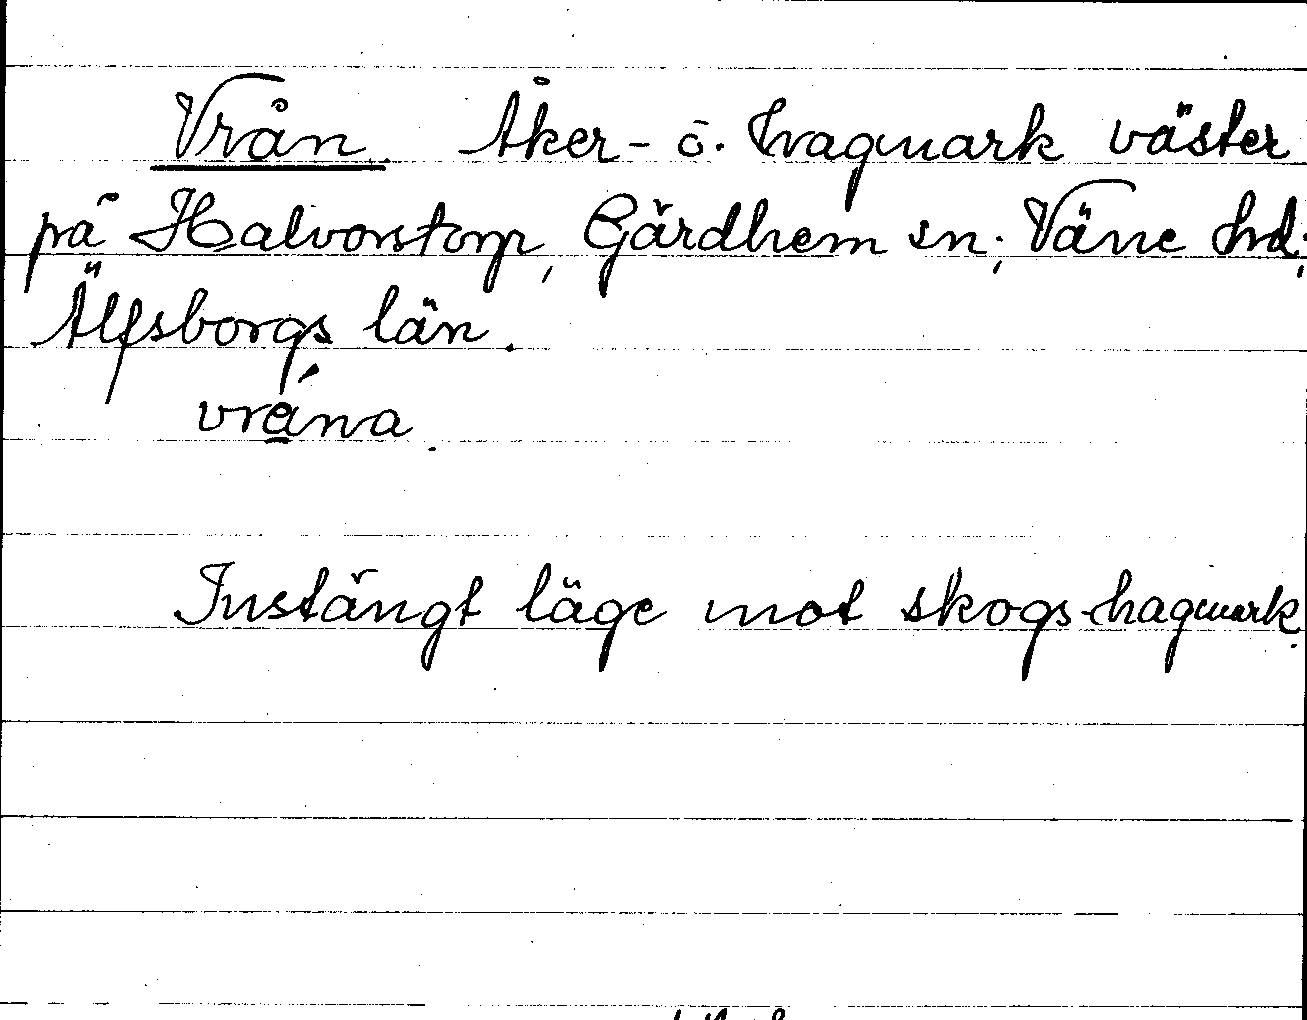 Vrån. Åker- o. hagmark väster
på Halvorstorp, Gärdhem sn; Väne hd;
Älfsborgs län.
vrána.
Instängt läge mot skogs-hagmark.